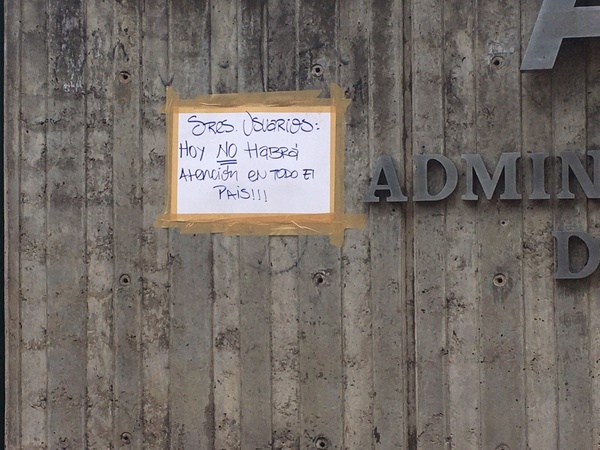 Sres. Usuarios:
Hoy NO Habrá
Atención en todo El
País!!!
A
ADMIN
D